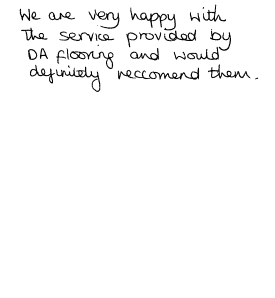 We are very happy with
the service provided by
DA flooring and would
definitely reccomend them.